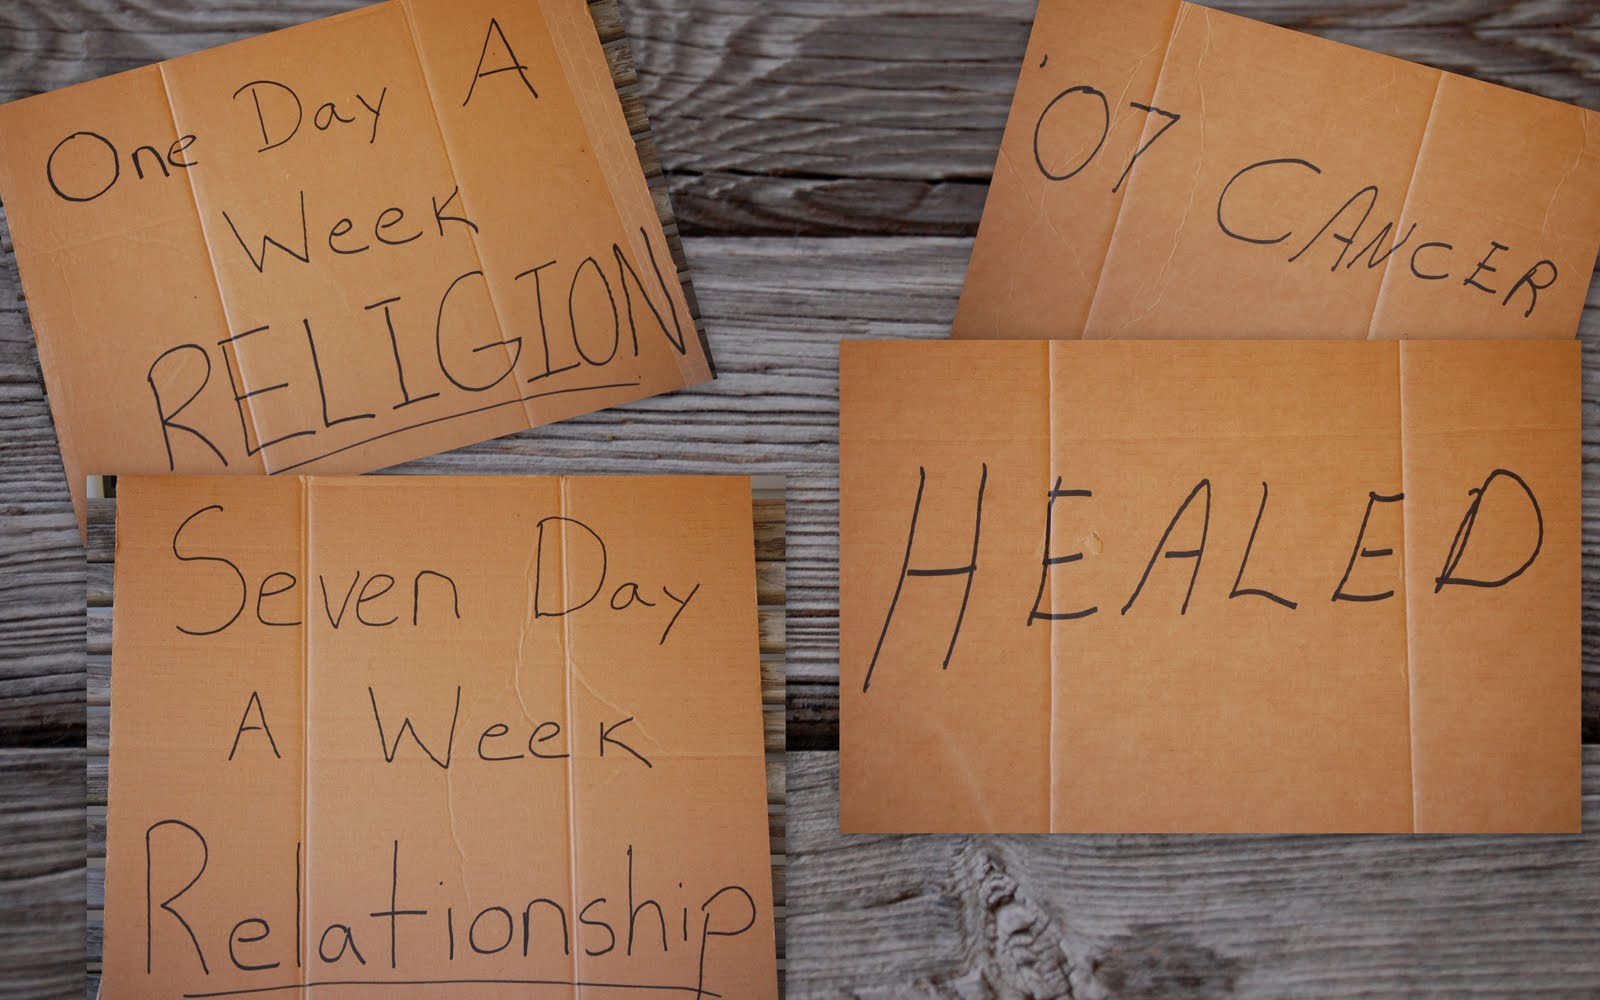 One Day A
Week
RELIGION
Seven Day
A Week
Relationship
'07 CANCER
HEALED